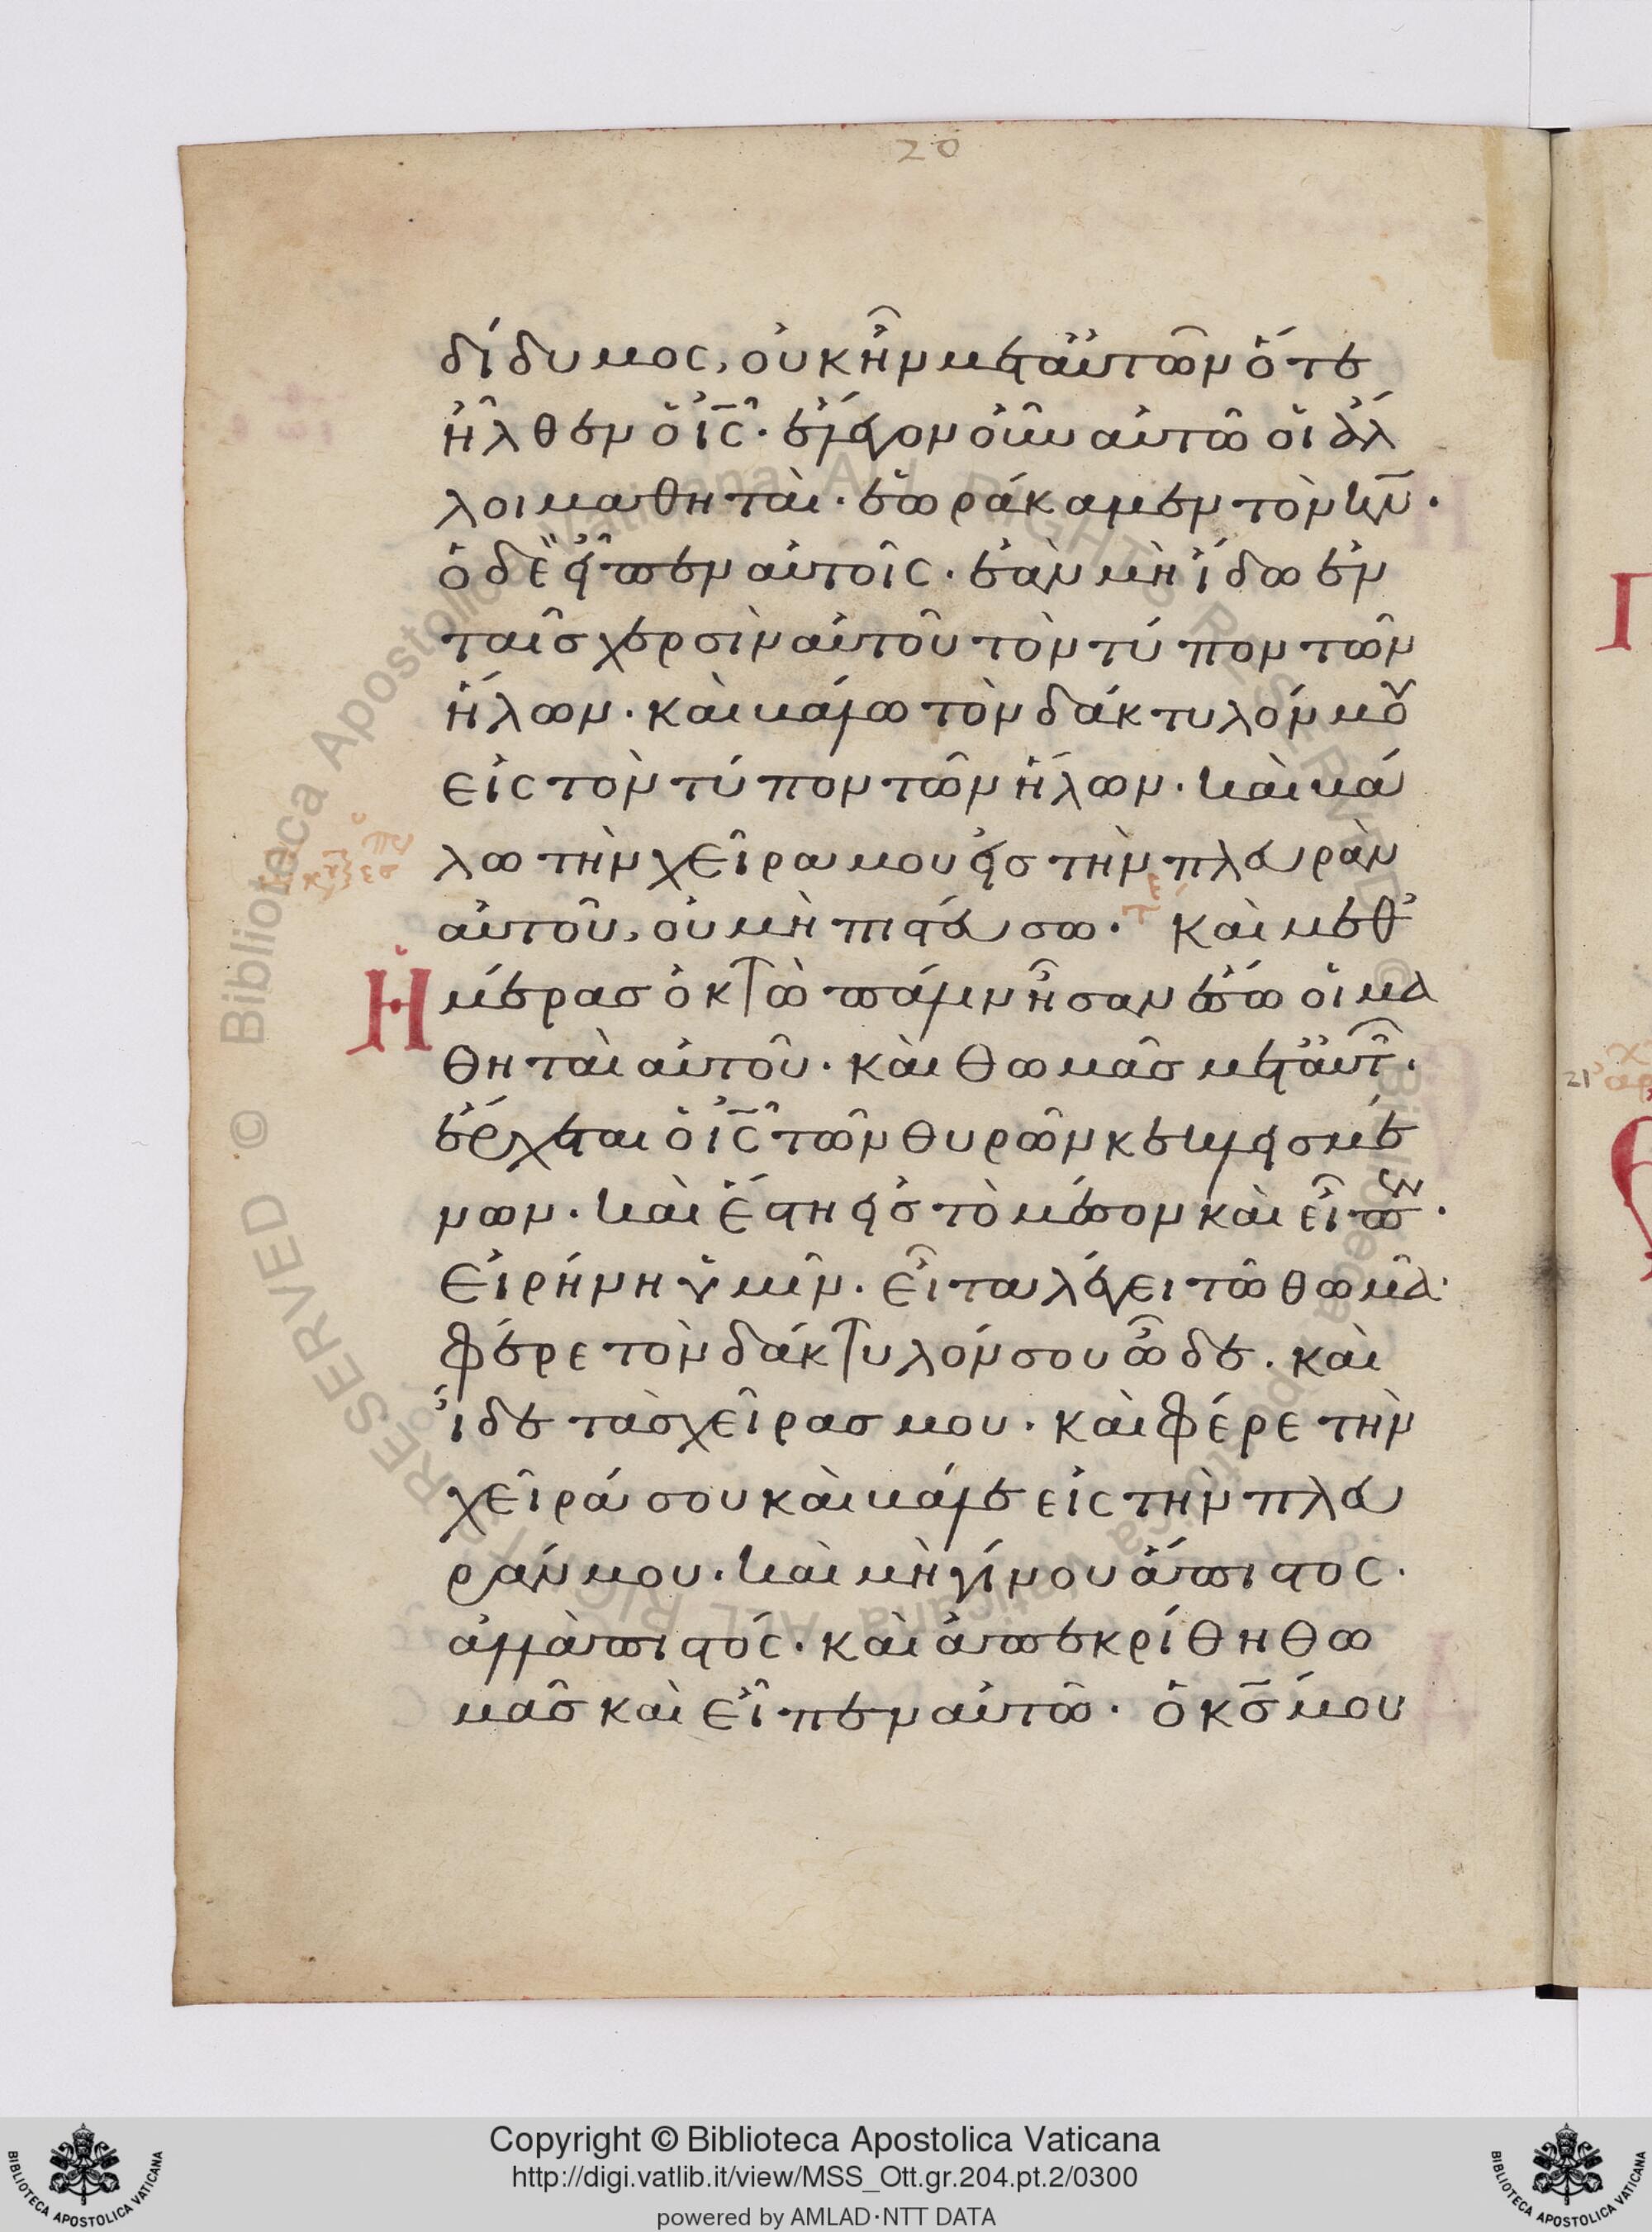 20
δίδυμος, οὐκ ἦν μετ αὐτῶν ὅτε
ἦλθεν ὁ ἰς̄. ἔλεγον οὖν αὐτῶ οἱ ἄλ
λοι μαθηταὶ. ἑωράκαμεν τὸν κ̄ν.
ὁ δὲ εἶπεν αὐτοῖς. ἐὰν μὴ ἴδω ἐν
ταῖς χερσὶν αὐτοῦ τὸν τύπον τῶν
ἥλων. καὶ βάλω τὸν δάκτυλόν μου
εἰς τὸν τύπον τῶν ἥλων. καὶ βά
λω τὴν χεῖρα μου εἰς τὴν πλευρὰν
αὐτοῦ, οὐ μὴ πιστεύσω. Καὶ μεθ
Ἡμέρας ὀκτὼ πάλιν ἦσαν ἔσω οἱ μα
θηταὶ αὐτοῦ. καὶ θωμᾶς μετ αὐτ̑.
ἔρχεται ὁ ἰς̄ τῶν θυρῶν κεκλεισμέ
νων. καὶ ἔστη εἰς τὸ μέσον καὶ εἶπεν.
Εἰρήνη ὑμῖν. εἶτα λέγει τῶ θωμᾶ.
φέρε τὸν δάκτυλόν σου ὧδε. καὶ
ἴδε τὰς χεῖρας μου. καὶ φέρε τὴν
χεῖρά σου καὶ βάλε εἰς τὴν πλευ
ράν μου. καὶ μὴ γίνου ἄπιστος.
ἀλλὰ πιστός. καὶ ἀπεκρίθη θω
μᾶς καὶ εἶπεν αὐτῶ. ὁ κς̄ μου
Copyright © Biblioteca Apostolica Vaticana
http://digi.vatlib.it/view/MSS_Ott.gr.204.pt.2/0300
powered by AMLAD·NTT DATA